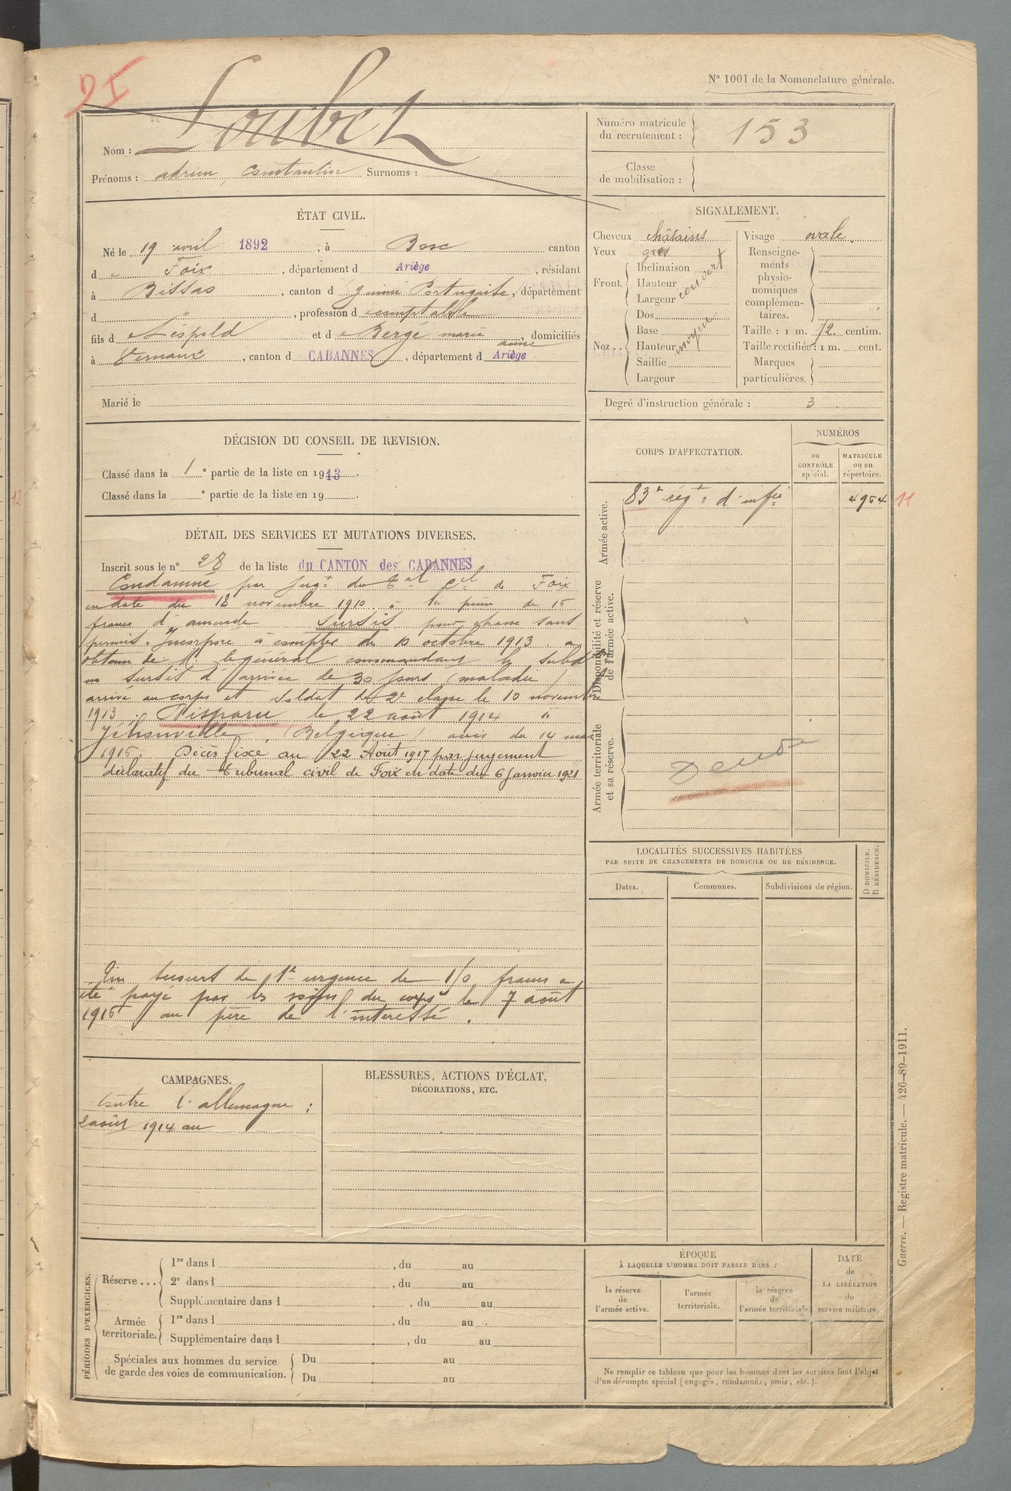 N° 1001 de la Nomenclature générale.
Nom : Loubet
Prénoms : adrien, Constantin Surnoms :
Numéro matricule du recrutement : 153
Classe de mobilisation :
ÉTAT CIVIL.
Né le 19 avril 1892, à Bosc canton
d Foix, département d Ariège, résidant
à Bissao, canton d guinée Portugaise, département
d " , profession d comptable
fils d Léopold et d Bergé marie domiciliés
à Vernaux, canton d CABANNES, département d Ariège
Marié le
SIGNALEMENT.
Cheveux châtains
Yeux gris
Front. Inclinaison
Hauteur
Largeur
couvert
Nez.. Dos
Base
Hauteur
Saillie
Largeur
moyen
Visage ovale.
Renseignements physionomiques complémentaires.
Taille : 1 m. 72 centim.
Taille rectifiée : 1 m. cent.
Marques particulières.
Degré d'instruction générale : 3
DÉCISION DU CONSEIL DE REVISION.
Classé dans la 1e partie de la liste en 1913.
Classé dans la e partie de la liste en 19
CORPS D'AFFECTATION.
NUMÉROS
DU CONTRÔLE spécial.
MATRICULE ou au répertoire.
Armée active.
83e régt d'infie 4954 11
Disponibilité et réserve de l'armée active.
Armée territoriale et sa réserve.
DÉTAIL DES SERVICES ET MUTATIONS DIVERSES.
Inscrit sous le n° 28 de la liste du CANTON des CABANNES
Condamné par jugt du tal cel de Foix
en date du 18 novembre 1910 à la peine de 16
francs d'amende sursis pour chasse sans
permis. Incorporé à compter du 10 octobre 1913 a
obtenu de M. le général commandant la subdon
un sursis d'arrivée de 30 jours (maladie)
arrivé au corps et soldat de 2e classe le 10 novembre
1913. Disparu le 22 août 1914 "
Jehonville (Belgique) avis du 14 mai
1915. Décès fixé au 22 Août 1917 par jugement
déclaratif du tribunal civil de Foix en date du 6 janvier 1921
Un secours de 1re urgence de 150 francs a
été payé par les soins du corps le 7 août
1915 au père de l'intéressé.
LOCALITÉS SUCCESSIVES HABITÉES
PAR SUITE DE CHANGEMENTS DE DOMICILE OU DE RÉSIDENCE.
Dates.
Communes.
Subdivisions de région.
D DOMICILE.
R RÉSIDENCE.
CAMPAGNES.
Contre l'allemagne :
2 août 1914 au
BLESSURES, ACTIONS D'ÉCLAT,
DÉCORATIONS, ETC.
PÉRIODES D'EXERCICES.
Réserve... 1re dans l , du au
2e dans l , du au
Supplémentaire dans l , du au
Armée territoriale. 1re dans l , du au
Supplémentaire dans l , du au
Spéciales aux hommes du service
de garde des voies de communication.
Du au
Du au
ÉPOQUE
À LAQUELLE L'HOMME DOIT PASSER DANS :
la réserve de l'armée active.
l'armée territoriale.
la réserve de l'armée territoriale
DATE de LA LIBÉRATION du service militaire.
Ne remplir ce tableau que pour les hommes dont les services font l'objet
d'un décompte spécial (engagés, condamnés, omis, etc.).
Guerre. — Registre matricule. — 426-89-1911.